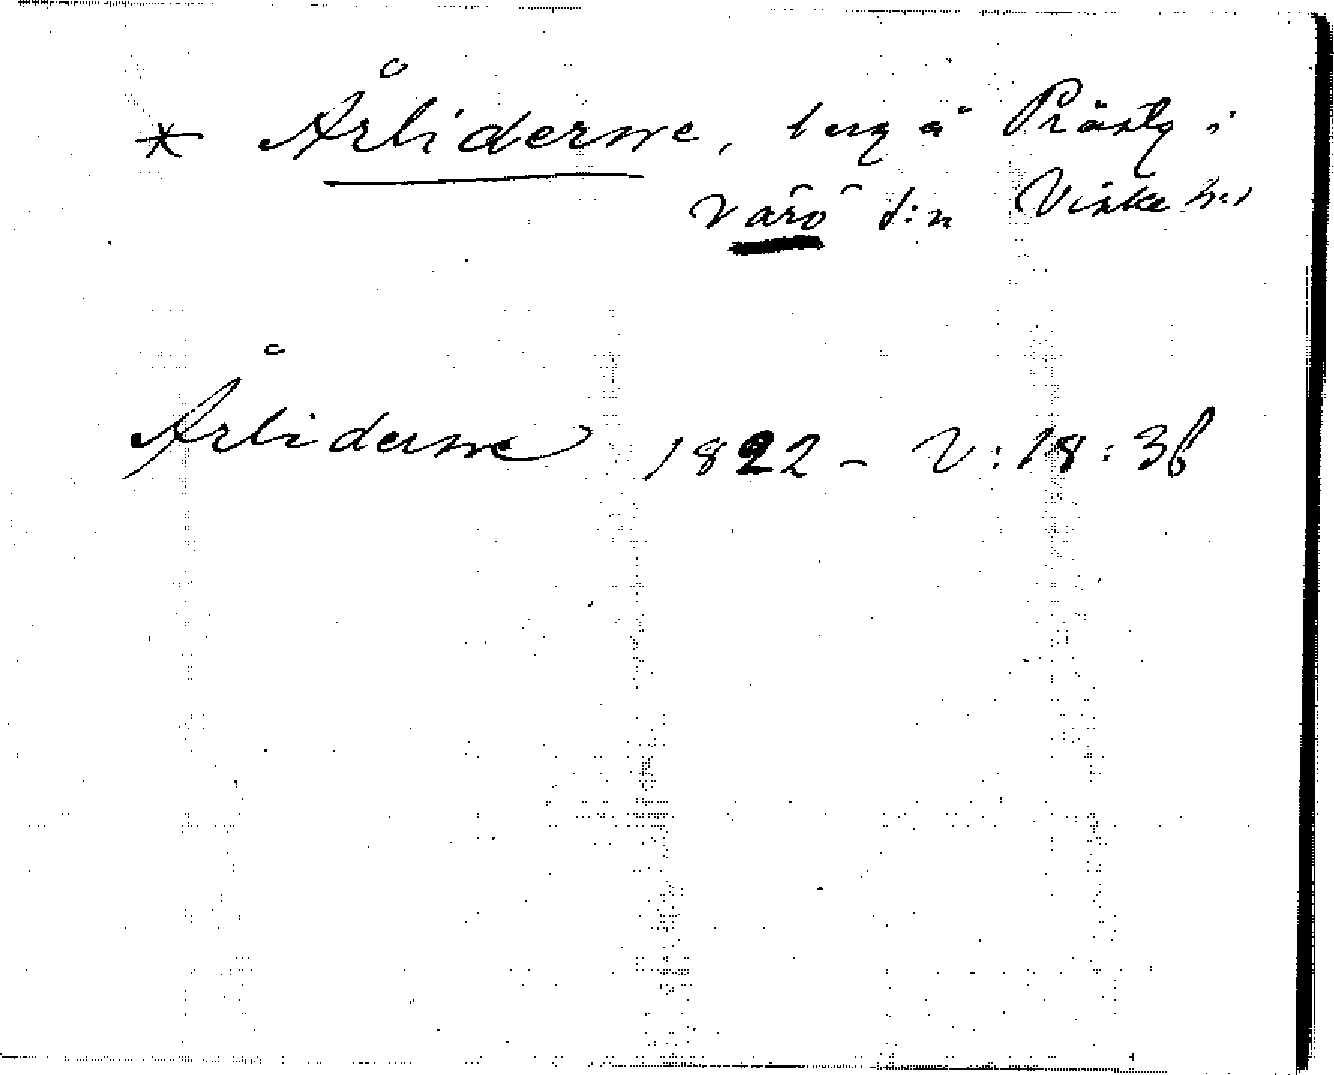 * Årliderne, berg å Prästg i
Värö s:n Viske hd
Årliderne 1822 - V:18:36